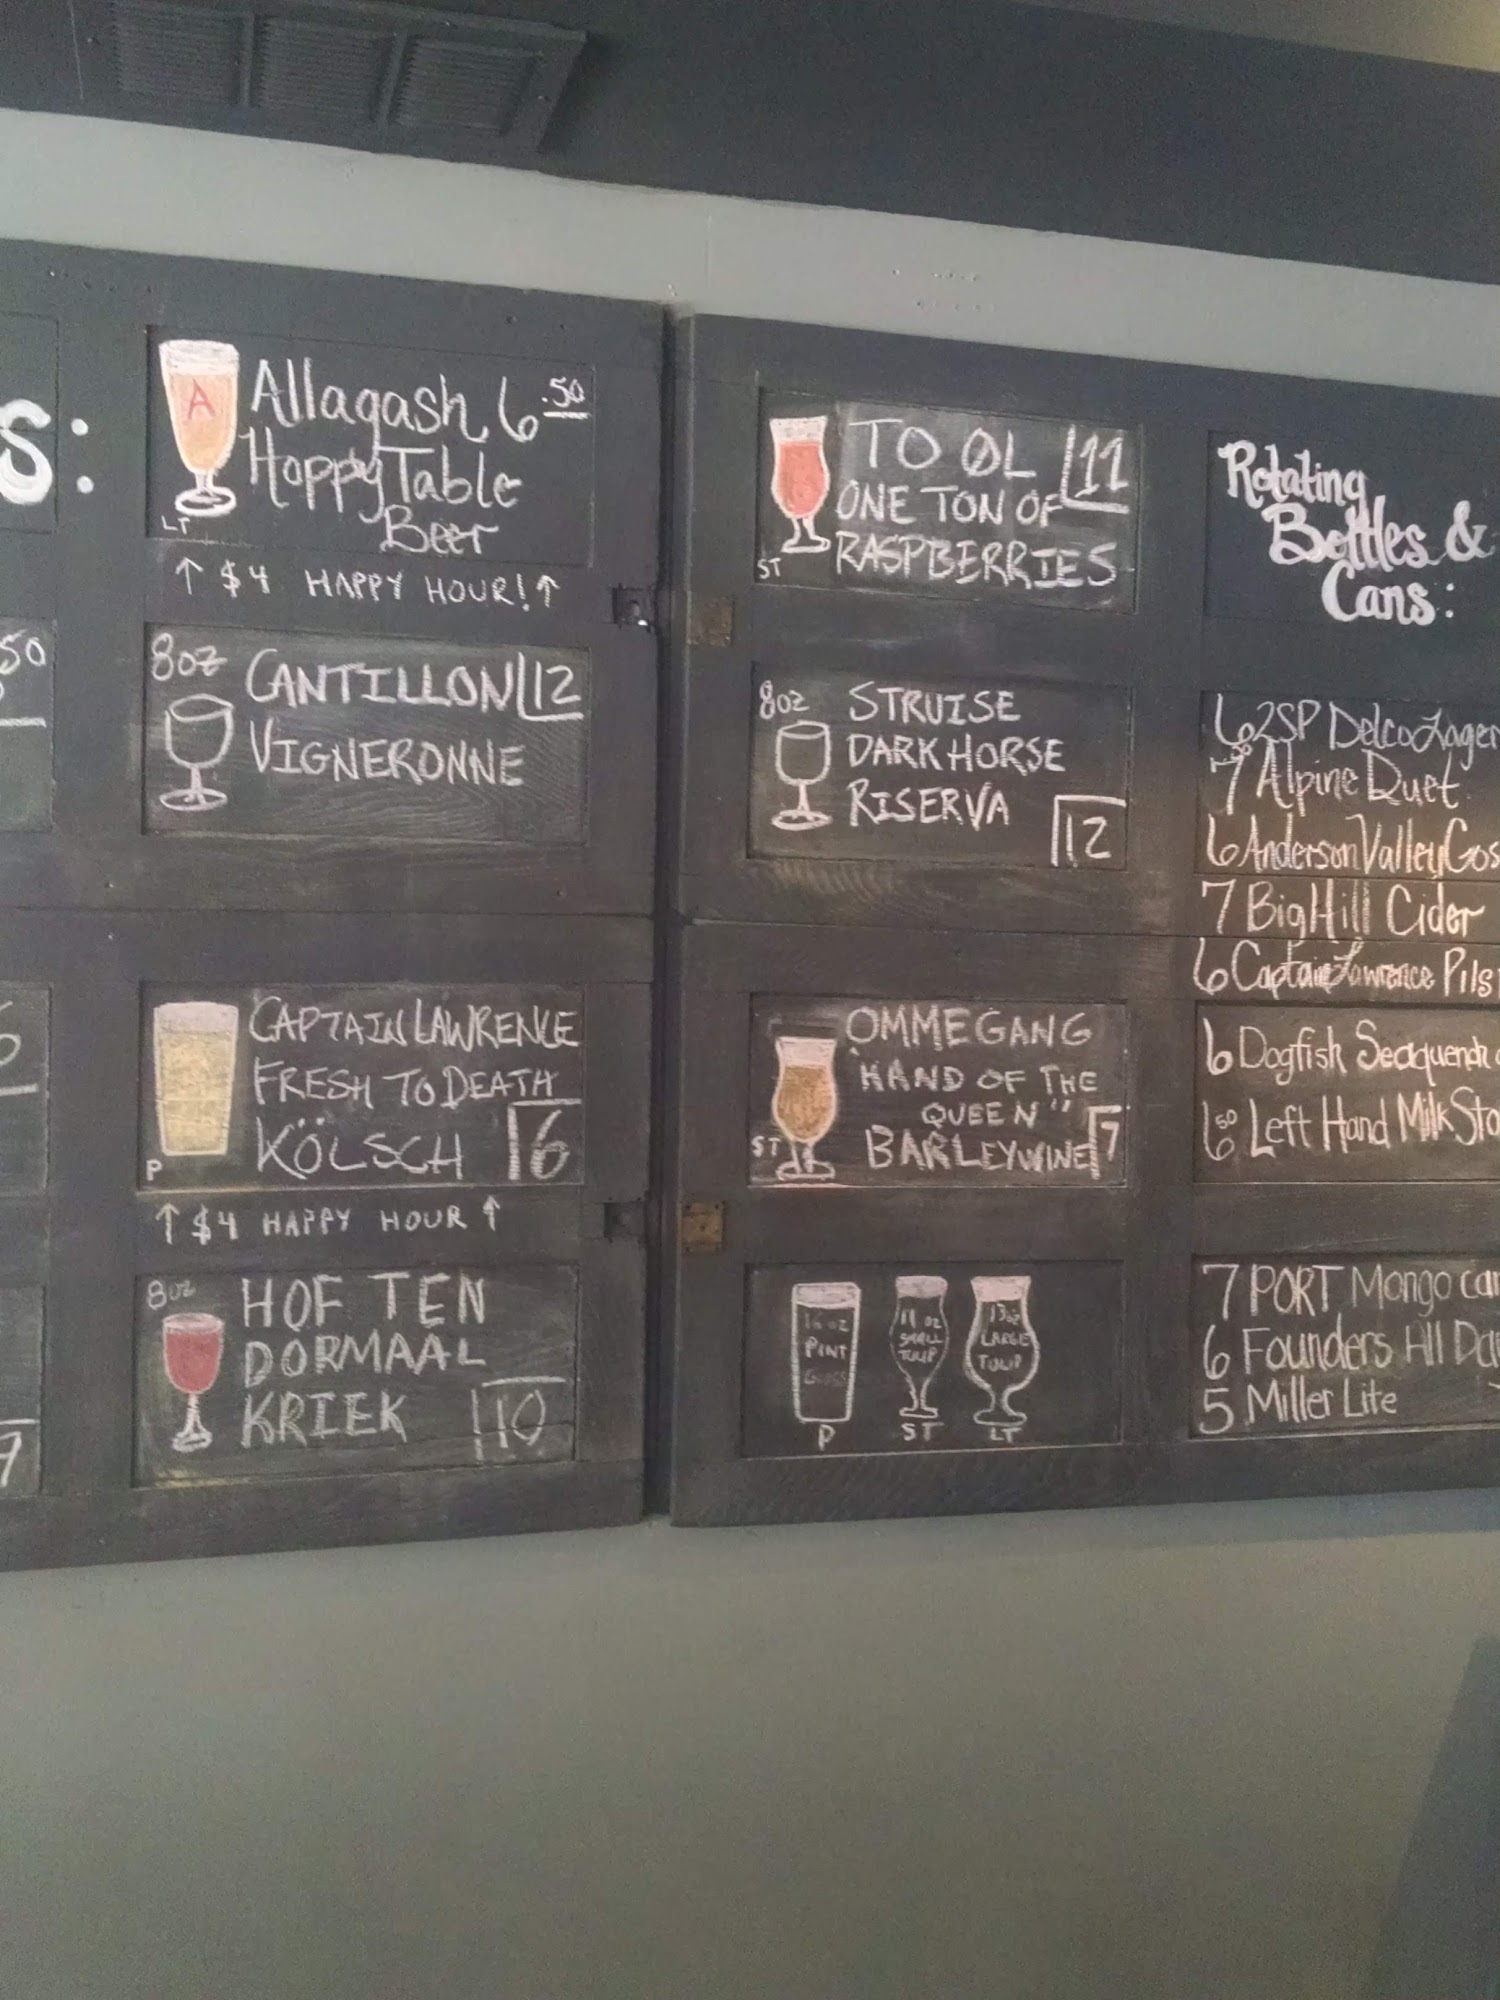 S:
A
Allagash 6.50
Hoppy Table
Beer
LT
↑ $4 HAPPY HOUR! ↑
50
8oz
CANTILLON 12
VIGNERONNE
CAPTAIN LAWRENCE
FRESH TO DEATH
KÖLSCH 6
P
↑ $4 HAPPY HOUR ↑
8oz
HOF TEN
DORMAAL
KRIEK 10
9
TO ØL 11
ONE TON OF
RASPBERRIES
ST
8oz
STRUISE
DARK HORSE
RISERVA
12
OMMEGANG
"HAND OF THE
QUEEN"
BARLEYWINE 7
ST
16 oz
PINT
GLASS
P
11 oz
SMALL
TULIP
ST
13oz
LARGE
TULIP
LT
Rotating
Bottles &
Cans:
6 2SP Delco Lager
7 Alpine Duet
6 Anderson Valley Gos
7 Big Hill Cider
6 Captain Lawrence Pils
6 Dogfish Seaquench
6 50 Left Hand Milk Sto
7 PORT Mongo can
6 Founders All Da
5 Miller Lite